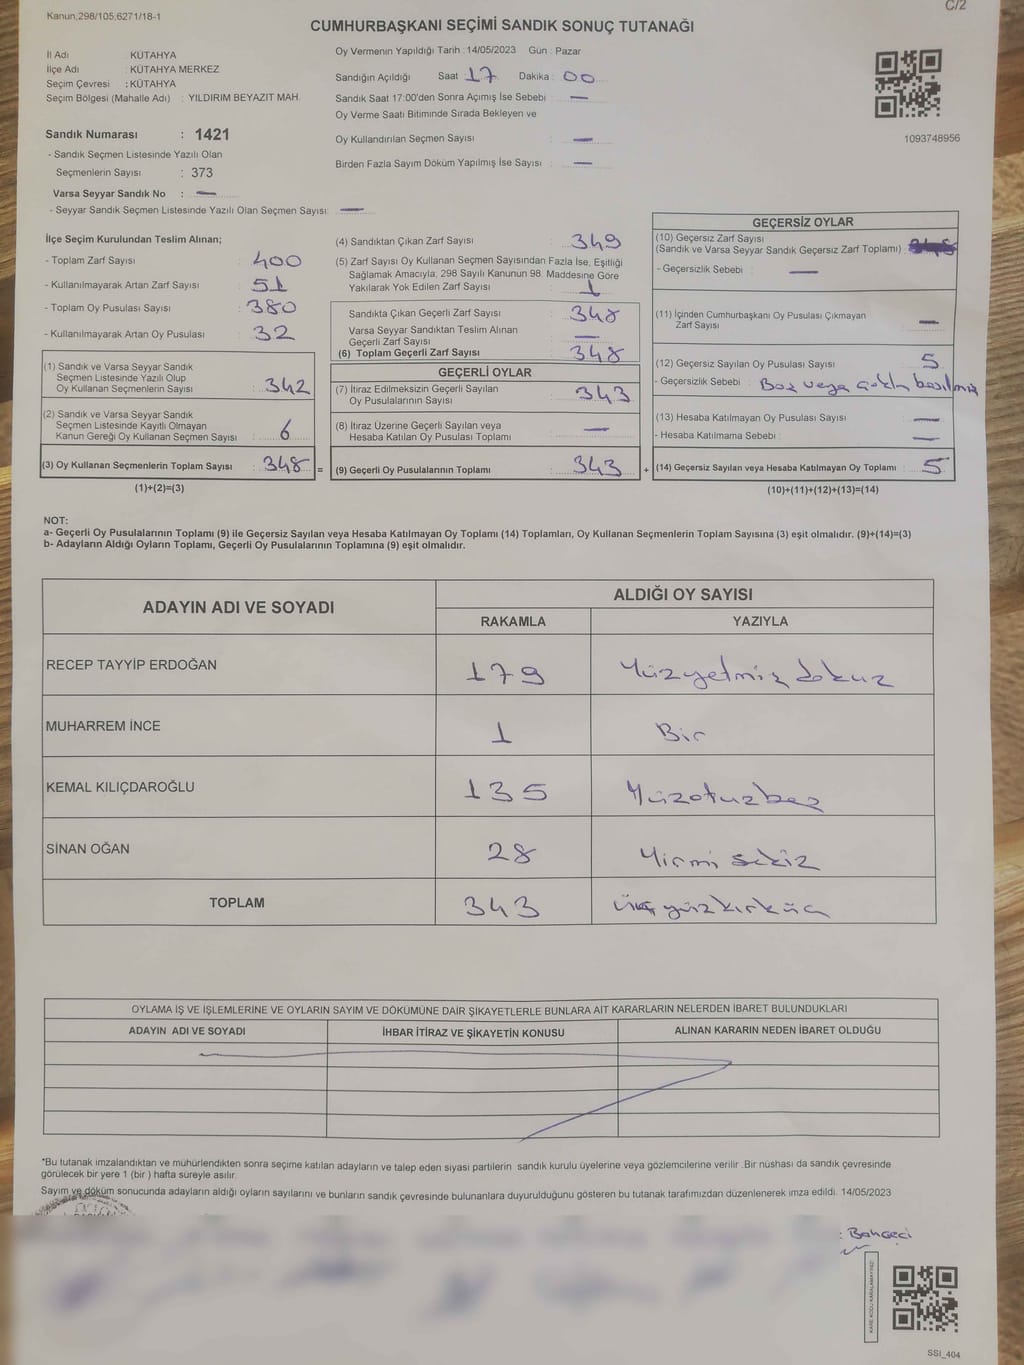 Kanun,298/105,6271/18-1
C/2
CUMHURBAŞKANI SEÇİMİ SANDIK SONUÇ TUTANAĞI
İl Adı : KÜTAHYA
İlçe Adı : KÜTAHYA MERKEZ
Seçim Çevresi : KÜTAHYA
Seçim Bölgesi (Mahalle Adı) : YILDIRIM BEYAZIT MAH.
Sandık Numarası : 1421
- Sandık Seçmen Listesinde Yazılı Olan
Seçmenlerin Sayısı : 373
Varsa Seyyar Sandık No : —
- Seyyar Sandık Seçmen Listesinde Yazılı Olan Seçmen Sayısı: —
Oy Vermenin Yapıldığı Tarih :14/05/2023 Gün : Pazar
Sandığın Açıldığı Saat 17 Dakika : 00
Sandık Saat 17:00'den Sonra Açımış İse Sebebi : —
Oy Verme Saati Bitiminde Sırada Bekleyen ve
Oy Kullandırılan Seçmen Sayısı : —
Birden Fazla Sayım Döküm Yapılmış İse Sayısı : —
1093748956
İlçe Seçim Kurulundan Teslim Alınan;
- Toplam Zarf Sayısı : 400
- Kullanılmayarak Artan Zarf Sayısı : 51
- Toplam Oy Pusulası Sayısı : 380
- Kullanılmayarak Artan Oy Pusulası : 32
(1) Sandık ve Varsa Seyyar Sandık
Seçmen Listesinde Yazılı Olup
Oy Kullanan Seçmenlerin Sayısı : 342
(2) Sandık ve Varsa Seyyar Sandık
Seçmen Listesinde Kayıtlı Olmayan
Kanun Gereği Oy Kullanan Seçmen Sayısı : 6
(3) Oy Kullanan Seçmenlerin Toplam Sayısı : 348 =
(1)+(2)=(3)
(4) Sandıktan Çıkan Zarf Sayısı : 349
(5) Zarf Sayısı Oy Kullanan Seçmen Sayısından Fazla İse, Eşitliği
Sağlamak Amacıyla; 298 Sayılı Kanunun 98. Maddesine Göre
Yakılarak Yok Edilen Zarf Sayısı : 1
Sandıkta Çıkan Geçerli Zarf Sayısı : 348
Varsa Seyyar Sandıktan Teslim Alınan
Geçerli Zarf Sayısı : —
(6) Toplam Geçerli Zarf Sayısı : 348
GEÇERLİ OYLAR
(7) İtiraz Edilmeksizin Geçerli Sayılan
Oy Pusulalarının Sayısı : 343
(8) İtiraz Üzerine Geçerli Sayılan veya
Hesaba Katılan Oy Pusulası Toplamı : —
(9) Geçerli Oy Pusulalarının Toplamı : 343 +
GEÇERSİZ OYLAR
(10) Geçersiz Zarf Sayısı
(Sandık ve Varsa Seyyar Sandık Geçersiz Zarf Toplamı) :
- Geçersizlik Sebebi : —
(11) İçinden Cumhurbaşkanı Oy Pusulası Çıkmayan
Zarf Sayısı : —
(12) Geçersiz Sayılan Oy Pusulası Sayısı : 5
- Geçersizlik Sebebi : Boş veya çoklu basılmış
(13) Hesaba Katılmayan Oy Pusulası Sayısı : —
- Hesaba Katılmama Sebebi : —
(14) Geçersiz Sayılan veya Hesaba Katılmayan Oy Toplamı : 5
(10)+(11)+(12)+(13)=(14)
NOT:
a- Geçerli Oy Pusulalarının Toplamı (9) ile Geçersiz Sayılan veya Hesaba Katılmayan Oy Toplamı (14) Toplamları, Oy Kullanan Seçmenlerin Toplam Sayısına (3) eşit olmalıdır. (9)+(14)=(3)
b- Adayların Aldığı Oyların Toplamı, Geçerli Oy Pusulalarının Toplamına (9) eşit olmalıdır.
ADAYIN ADI VE SOYADI
ALDIĞI OY SAYISI
RAKAMLA YAZIYLA
RECEP TAYYİP ERDOĞAN 179 Yüzyetmiş dokuz
MUHARREM İNCE 1 Bir
KEMAL KILIÇDAROĞLU 135 Yüzotuzbeş
SİNAN OĞAN 28 Yirmi sekiz
TOPLAM 343 üçyüzkırküç
OYLAMA İŞ VE İŞLEMLERİNE VE OYLARIN SAYIM VE DÖKÜMÜNE DAİR ŞİKAYETLERLE BUNLARA AİT KARARLARIN NELERDEN İBARET BULUNDUKLARI
ADAYIN ADI VE SOYADI İHBAR İTİRAZ VE ŞİKAYETİN KONUSU ALINAN KARARIN NEDEN İBARET OLDUĞU
*Bu tutanak imzalandıktan ve mühürlendikten sonra seçime katılan adayların ve talep eden siyasi partilerin sandık kurulu üyelerine veya gözlemcilerine verilir .Bir nüshası da sandık çevresinde
görülecek bir yere 1 (bir ) hafta süreyle asılır.
Sayım ve döküm sonucunda adayların aldığı oyların sayılarını ve bunların sandık çevresinde bulunanlara duyurulduğunu gösteren bu tutanak tarafımızdan düzenlenerek imza edildi. 14/05/2023
: Bahçeci
KARE KODU KARALAMAYINIZ!
SSI_404